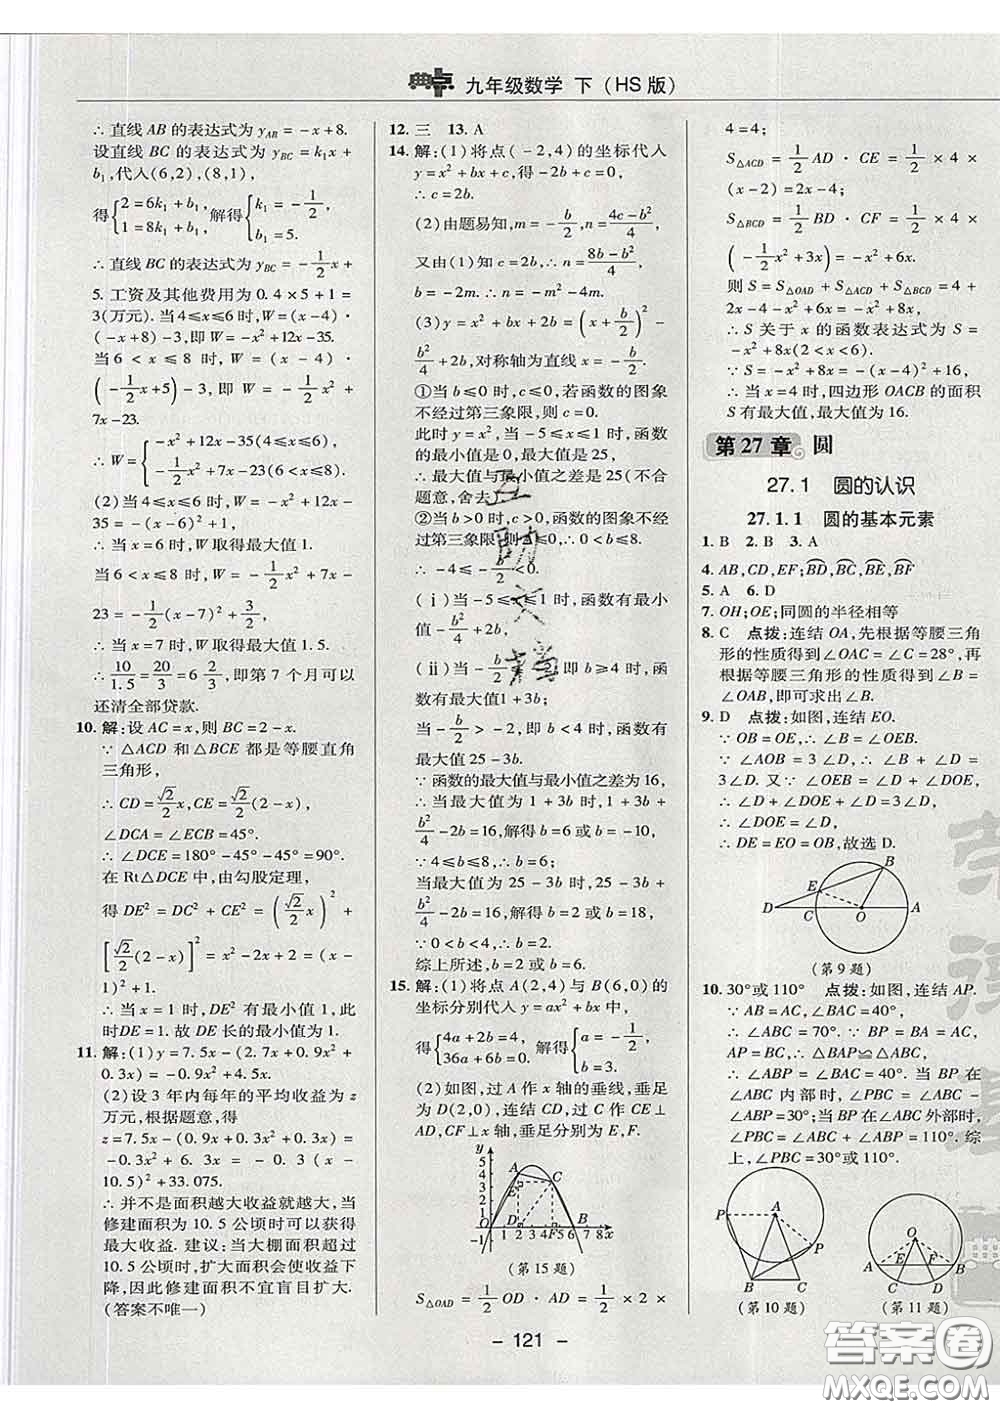 典点 九年级数学 下(HS版)
∴直线AB的表达式为y_AB=-x+8.
设直线BC的表达式为y_BC=k₁x+
b₁,代入(6,2),(8,1),
得{2=6k₁+b₁, 1=8k₁+b₁,解得{k₁=-1/2, b₁=5.
∴直线BC的表达式为y_BC=-1/2x+
5.工资及其他费用为0.4×5+1=
3(万元).当4≤x≤6时,W=(x-4)·
(-x+8)-3,即W=-x²+12x-35.
当6<x≤8时,W=(x-4)·
(-1/2x+5)-3,即W=-1/2x²+
7x-23.
∴W={-x²+12x-35(4≤x≤6), -1/2x²+7x-23(6<x≤8).
(2)当4≤x≤6时,W=-x²+
12x-35=-(x-6)²+1,
∴当x=6时,W取得最大值1.
当6<x≤8时,W=-1/2x²+7x-
23=-1/2(x-7)²+3/2,
∴当x=7时,W取得最大值1.5.
∴10/1.5=20/3=6 2/3,即第7个月可以
还清全部贷款.
10.解:设AC=x,则BC=2-x.
∵△ACD和△BCE都是等腰直角
三角形,
∴CD=√2/2x,CE=√2/2(2-x),
∠DCA=∠ECB=45°.
∴∠DCE=180°-45°-45°=90°.
在Rt△DCE中,由勾股定理,
得DE²=DC²+CE²=(√2/2x)²+
[√2/2(2-x)]²=x²-2x+2=(x-
1)²+1.
∴当x=1时,DE²有最小值1,
此时DE=1.故DE长的最小值为1.
11.解:(1)y=7.5x-(2.7x+0.9x²+
0.3x)=-0.9x²+4.5x.
(2)设3年内每年的平均收益为z
万元,根据题意,得
z=7.5x-(0.9x+0.3x²+0.3x)=
-0.3x²+6.3x=-0.3(x-
10.5)²+33.075.
∴并不是面积越大收益就越大,当
修建面积为10.5公顷时可以获得
最大收益.建议:当大棚面积超过
10.5公顷时,扩大面积会使收益下
降,因此修建面积不宜盲目扩大.
(答案不唯一)
12.三 13.A
14.解:(1)将点(-2,4)的坐标代入
y=x²+bx+c,得-2b+c=0,
∴c=2b.
(2)由题易知,m=-b/2,n=(4c-b²)/4,
又由(1)知c=2b,∴n=(8b-b²)/4,
b=-2m.∴n=-m²-4m.
(3)y=x²+bx+2b=(x+b/2)²-
b²/4+2b,对称轴为直线x=-b/2.
①当b≤0时,c≤0,若函数的图象
不经过第三象限,则c=0.
此时y=x²,当-5≤x≤1时,函数
的最小值是0,最大值是25,
∴最大值与最小值之差是25(不合
题意,舍去).
②当b>0时,c>0,函数的图象不经
过第三象限,则b²/4-2b≤0,∴0<b≤8.
∴-4≤-b/2<0.
(ⅰ)当-5≤x≤1时,函数有最小
值-b²/4+2b,
(ⅱ)当-5≤-b/2<-2,即b≥4时,函
数有最大值1+3b;
当-b/2>-2,即b<4时,函数有
最大值25-3b.
∵函数的最大值与最小值之差为16,
∴当最大值为1+3b时,1+3b+
b²/4-2b=16,解得b=6或b=-10,
∵4≤b≤8,∴b=6;
当最大值为25-3b时,25-3b+
b²/4-2b=16,解得b=2或b=18,
∵0<b<4,∴b=2.
综上所述,b=2或b=6.
15.解:(1)将点A(2,4)与B(6,0)的
坐标分别代入y=ax²+bx,
得{4a+2b=4, 36a+6b=0.解得{a=-1/2, b=3.
(2)如图,过A作x轴的垂线,垂足
为D(2,0),连结CD,过C作CE⊥
AD,CF⊥x轴,垂足分别为E,F.
y
5
4
3
2
1
-1
O D F B x
2 3 4 5 6 7 8
A
E
C
(第15题)
S△OAD=1/2OD·AD=1/2×2×
4=4;
S△ACD=1/2AD·CE=1/2×4×
(x-2)=2x-4;
S△BCD=1/2BD·CF=1/2×4×
(-1/2x²+3x)=-x²+6x.
则S=S△OAD+S△ACD+S△BCD=4+
2x-4-x²+6x=-x²+8x,
∴S关于x的函数表达式为S=
-x²+8x(2<x<6).
∵S=-x²+8x=-(x-4)²+16,
∴当x=4时,四边形OACB的面积
S有最大值,最大值为16.
第27章 圆
27.1 圆的认识
27.1.1 圆的基本元素
1.B 2.B 3.A
4.AB,CD,EF;BD,BC,BE,BF
5.A 6.D
7.OH;OE;同圆的半径相等
8.C 点拨:连结OA,先根据等腰三角
形的性质得到∠OAC=∠C=28°,再
根据等腰三角形的性质得到∠B=
∠OAB,即可求出∠B.
9.D 点拨:如图,连结EO.
∵OB=OE,∴∠B=∠OEB.
∵∠AOB=3∠D,∴∠B+∠D=
3∠D.又∵∠OEB=∠D+∠DOE,
∴∠D+∠DOE+∠D=3∠D,
∴∠DOE=∠D,
∴DE=EO=OB,故选D.
B
E
D O A
(第9题)
10.30°或110° 点拨:如图,连结AP.
∵AB=AC,∠BAC=40°,
∴∠ABC=70°.∵BP=BA=AC,
AP=BC,∴△BAP≌△ABC,
∴∠ABP=∠BAC=40°.当BP在
∠ABC内部时,∠PBC=∠ABC-
∠ABP=30°;当BP在∠ABC外部时,
∠PBC=∠ABC+∠ABP=110°.综
上,∠PBC=30°或110°.
P A P B C
(第10题)
O A C E F D B
(第11题)
- 121 -
答案圈
MXQE.COM